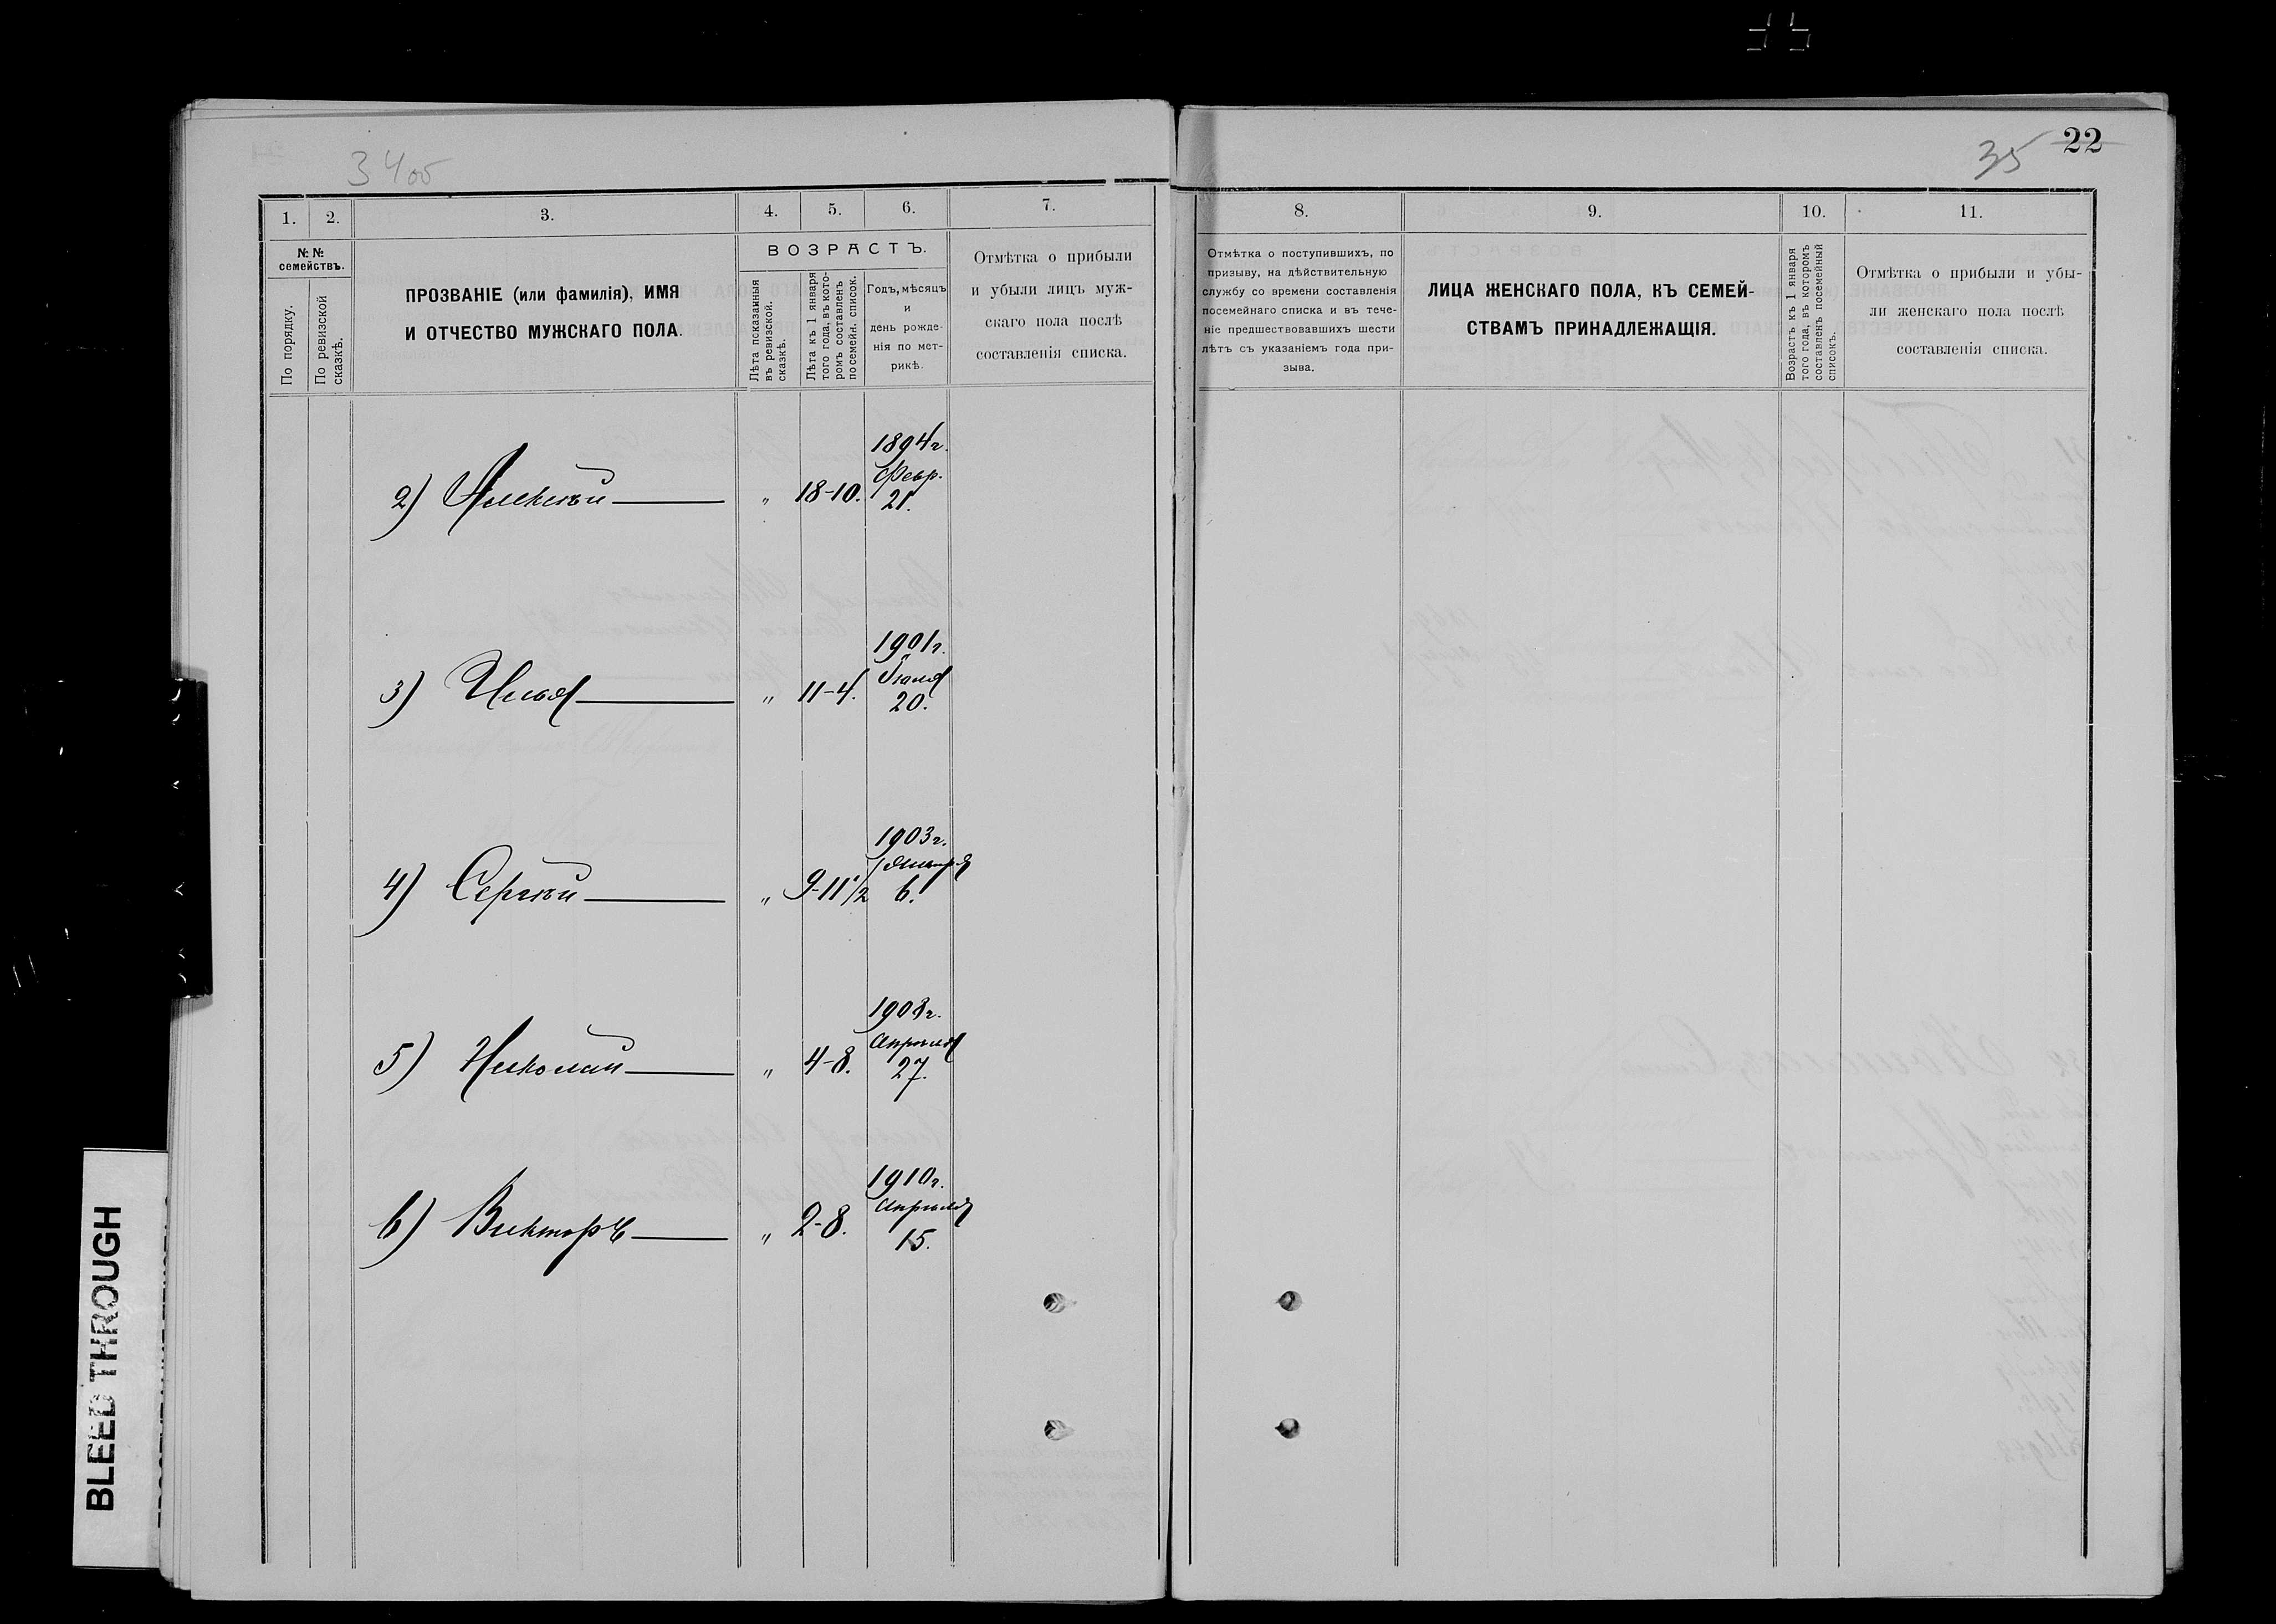 34об
35 22
1. 2. 3. 4. 5. 6. 7.
№ №
семействъ.
По порядку.
По ревизской
сказкѣ.
ПРОЗВАНІЕ (или фамилія), ИМЯ
И ОТЧЕСТВО МУЖСКАГО ПОЛА.
ВОЗРАСТЪ.
Лѣта показанныя
въ ревизской.
сказкѣ.
Лѣта къ 1 января
того года, въ кото-
ромъ составленъ
посемейн. список.
Годъ, мѣсяцъ
и
день рожде-
нія по мет-
рикѣ.
Отмѣтка о прибыли
и убыли лицъ муж-
скаго пола послѣ
составленія списка.
8. 9. 10. 11.
Отмѣтка о поступившихъ, по
призыву, на дѣйствительную
службу со времени составленія
посемейнаго списка и въ тече-
ніе предшествовавшихъ шести
лѣтъ съ указаніемъ года при-
зыва.
ЛИЦА ЖЕНСКАГО ПОЛА, КЪ СЕМЕЙ-
СТВАМЪ ПРИНАДЛЕЖАЩІЯ.
Возрастъ къ 1 января
того года, въ которомъ
составленъ посемейный
списокъ.
Отмѣтка о прибыли и убы-
ли женскаго пола послѣ
составленія списка.
1894 г.
Февр.
2) Алексѣй — " 18-10. 21.
1901 г.
Іюля
3) Илья — " 11-4. 20.
1903 г.
Января
4) Сергѣй — " 9-11 1/2 6.
1908 г.
Апрѣля
5) Николай — " 4-8. 27.
1910 г.
Апрѣля
6) Викторъ — " 2-8. 15.
BLEED THROUGH